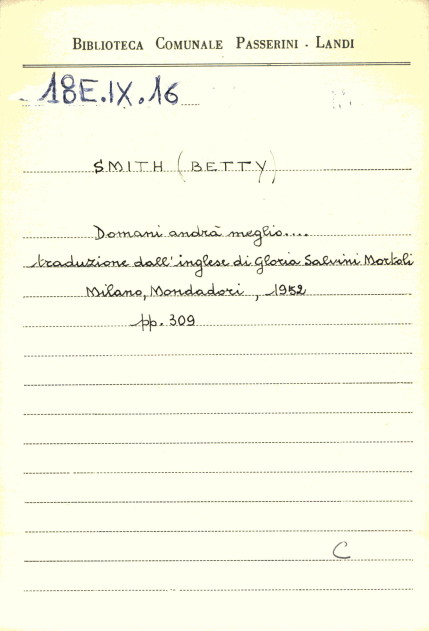 BIBLIOTECA COMUNALE PASSERINI - LANDI
18E.IX.16
SMITH (BETTY)
Domani andrà meglio....
traduzione dall'inglese di Gloria Salvini Mortoli
Milano, Mondadori, 1952
pp. 309
C